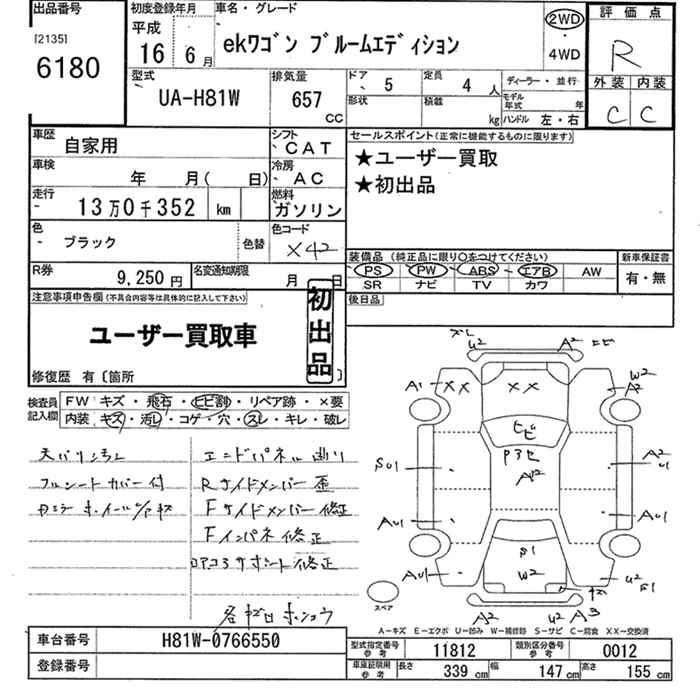 出品番号
[2135]
6180
初度登録年月
平成
16 年 6 月
車名・グレード
ekワゴン ブルームエディション
2WD
・
4WD
評価点
R
外装 内装
C C
型式
UA-H81W
排気量
657
CC
ドア
5
形状
定員
4 人
積載
kg
ディーラー・並行
モデル年式 年
ハンドル 左・右
車歴
自家用
シフト
CAT
車検
年 月( 日)
冷房
AC
走行
13万0千352 km
燃料
ガソリン
色
ブラック
色替
色コード
X42
R券
9,250円
名変通知期限
月 日
セールスポイント(正常に機能するものに限ります)
★ユーザー買取
★初出品
装備品(純正品に限り○をつけてください)
PS PW ABS エアB AW
SR ナビ TV カワ
新車保証書
有・無
後日品
注意事項申告欄(不具合内容等は具体的に記入して下さい)
ユーザー買取車
初出品
修復歴 有〔箇所 〕
検査員記入欄
FW キズ・飛石・ヒビ割・リペア跡・×要
内装 キズ・汚レ・コゲ・穴・スレ・キレ・破レ
天バリ汚レ
フルシートカバー付
エンドパネル曲り
Rサイドメンバー歪
Fサイドメンバー修正
Fインパネ修正
ロアコアサポート修正
U2 A2
A1 XX XX W2 A2
ヒビ
P3セ
A2
S01 A2 U1
A01 A01
S1
A01 W2 U2 S1
A2 U2 A3
スペア
A-キズ E-エクボ U-凹み W-補修跡 S-サビ C-腐食 XX-交換済
車台番号
H81W-0766550
登録番号
型式指定番号 参考
11812
類別区分番号 参考
0012
車庫証明用 参考
長さ 339 cm 幅 147 cm 高さ 155 cm